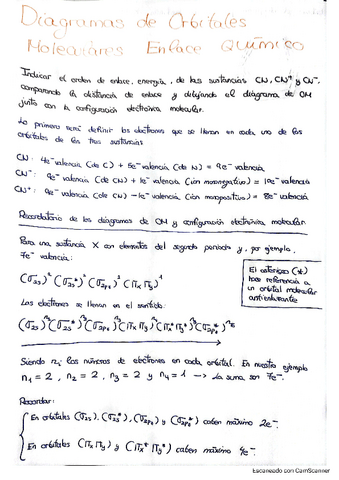 Diagramas de Orbitales
Moleculares Enlace Químico
Indicar el orden de enlace, energía, de las sustancias CN, CN⁺ y CN⁻,
comparando la distancia de enlace y dibujando el diagrama de OM
junto con la configuración electrónica molecular.
Lo primero será definir los electrones que se llenan en cada uno de los
orbitales de las tres sustancias
CN: 4e⁻ valencia (de C) + 5e⁻ valencia (de N) = 9e⁻ valencia
CN⁻: 9e⁻ valencia (de CN) + 1e⁻ valencia (ion mononegativo) = 10e⁻ valencia
CN⁺: 9e⁻ valencia (de CN) − 1e⁻ valencia (ion monopositivo) = 8e⁻ valencia
Recordatorio de los diagramas de OM y configuración electrónica molecular
Para una sustancia X con elementos del segundo periodo y, por ejemplo,
7e⁻ valencia:
(σ2s)² (σ2s*)² (σ2pz)² (πx πy)¹
El asterisco (*)
hace referencia a
un orbital molecular
antienlazante
Los electrones se llenan en el sentido:
(σ2s)ⁿ¹ (σ2s*)ⁿ² (σ2pz)ⁿ³ (πx πy)ⁿ⁴ (πx* πy*)ⁿ⁵ (σ2pz*)ⁿ⁶
Siendo nᵢ los números de electrones en cada orbital. En nuestro ejemplo
n₁ = 2, n₂ = 2, n₃ = 2 y n₄ = 1 → La suma son 7e⁻.
Recordar:
En orbitales (σ2s), (σ2s*), (σ2pz) y (σ2pz*) caben máximo 2e⁻.
En orbitales (πx πy) y (πx* πy*) caben máximo 4e⁻.
Escaneado con CamScanner